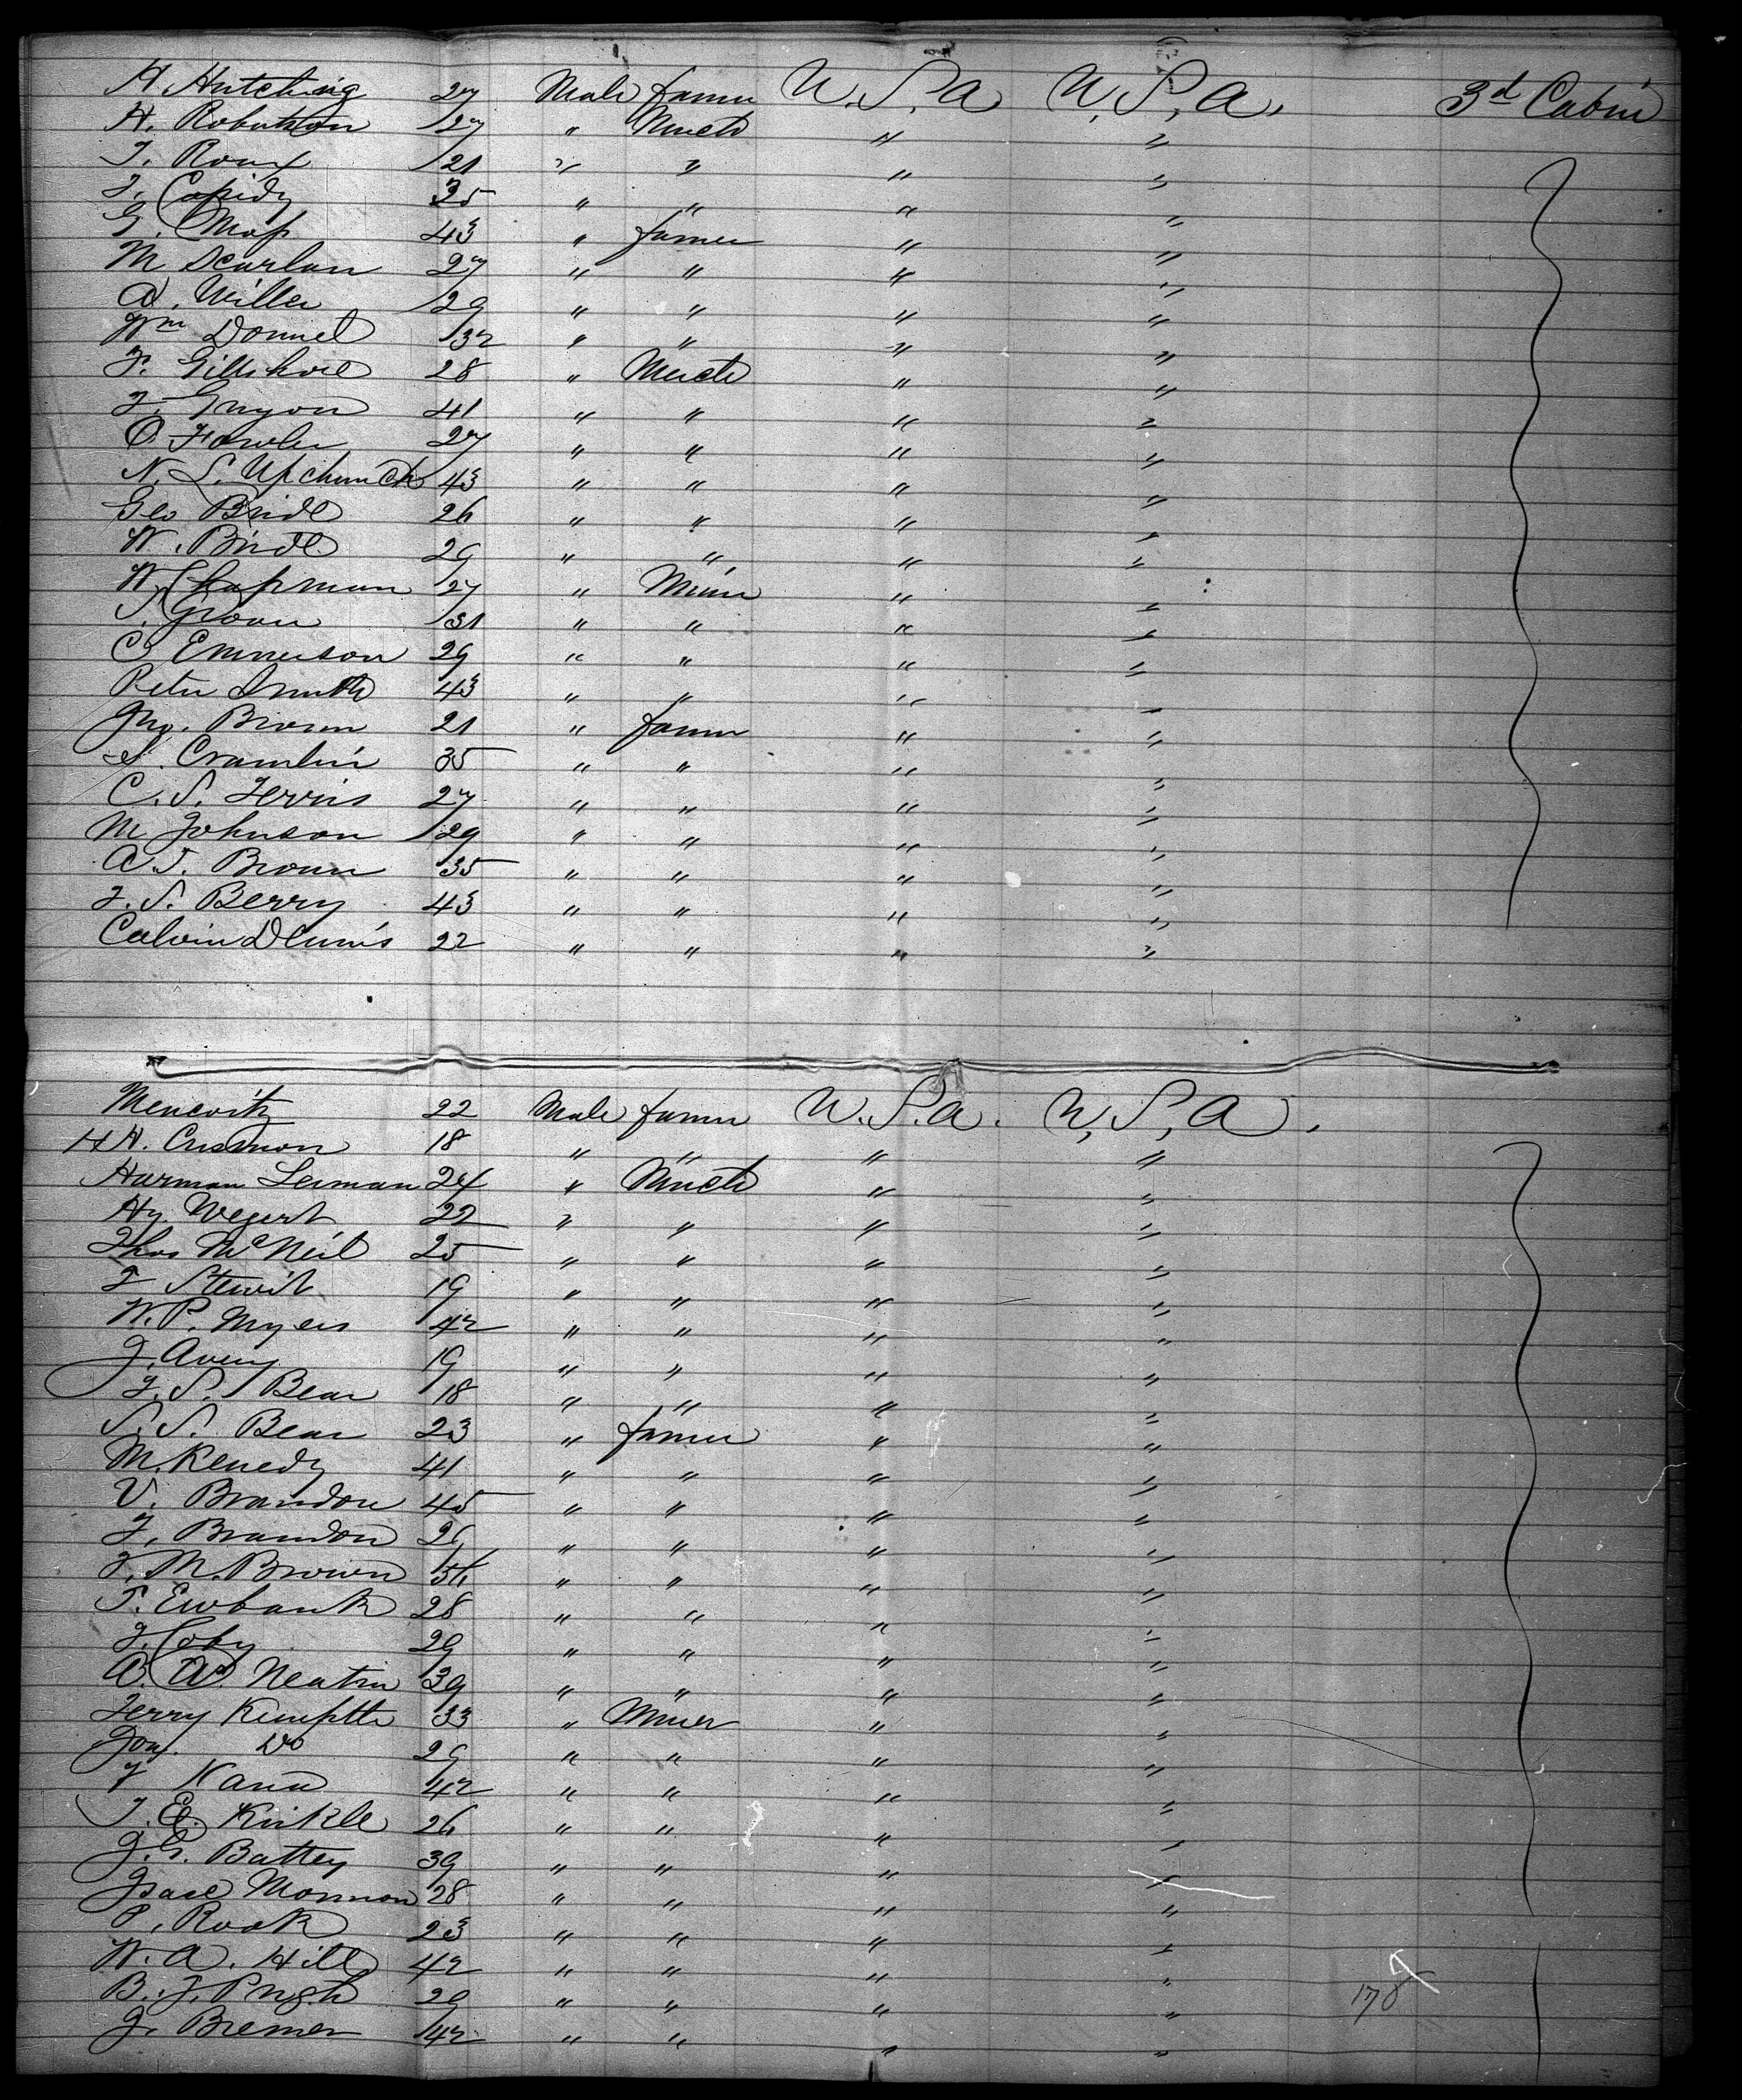 H. Hutching 27 Male farmer U.S.A. U.S.A. 3d Cabin
H. Robertson 27 " Mercht " "
T. Roux 21 " " " "
J. Capidy 35 " " " "
G. Mop 43 " farmer " "
M Scanlan 27 " " " "
A. Miller 29 " " " "
Wm Donnel 32 " " " "
F. 28 " Mercht " "
J. Guyon 41 " " " "
O. Fowler 27 " " " "
N. S. Upchurch 43 " " " "
Geo Bridl 26 " " " "
W. Bridl 29 " " " "
W. Chapman 27 " Miner " "
S. Groan 31 " " " "
C. Emmerson 29 " " " "
Peter Smith 43 " " " "
Jno. Brown 21 " farmer " "
S. Cramlin 35 " " " "
C. S. Ferris 27 " " " "
M Johnson 29 " " " "
A. T. Brown 35 " " " "
J. S. Berry 43 " " " "
Calvin Dennis 22 " " " "
Mencovitz 22 Male farmer U.S.A. U.S.A.
H H. Cusmon 18 " " " "
Harman Leiman 24 " Mercht " "
Hy. Wegert 22 " " " "
Thos McNeil 25 " " " "
F Stewit 19 " " " "
W. P. Myers 42 " " " "
J. Avery 19 " " " "
J. S. Bear 18 " " " "
S. S. Bear 23 " farmer " "
M. Kenedy 41 " " " "
V. Brandon 45 " " " "
J. Brandon 26 " " " "
J. M. Brown 56 " " " "
T. Ewbank 28 " " " "
J. Coby 29 " " " "
A. A. Neatin 39 " " " "
Jerry Kemptte 33 " Miner " "
Jon. Do 29 " " " "
F Kana 42 " " " "
T. E. Kinkle 26 " " " "
J. G. Battey 39 " " " "
Isaac Monmon 28 " " " "
P. Rook 23 " " " "
W. A. Hill 42 " " " "
B. J. Pugh 29 " " " "
J. Bremer 42 " " " "
178